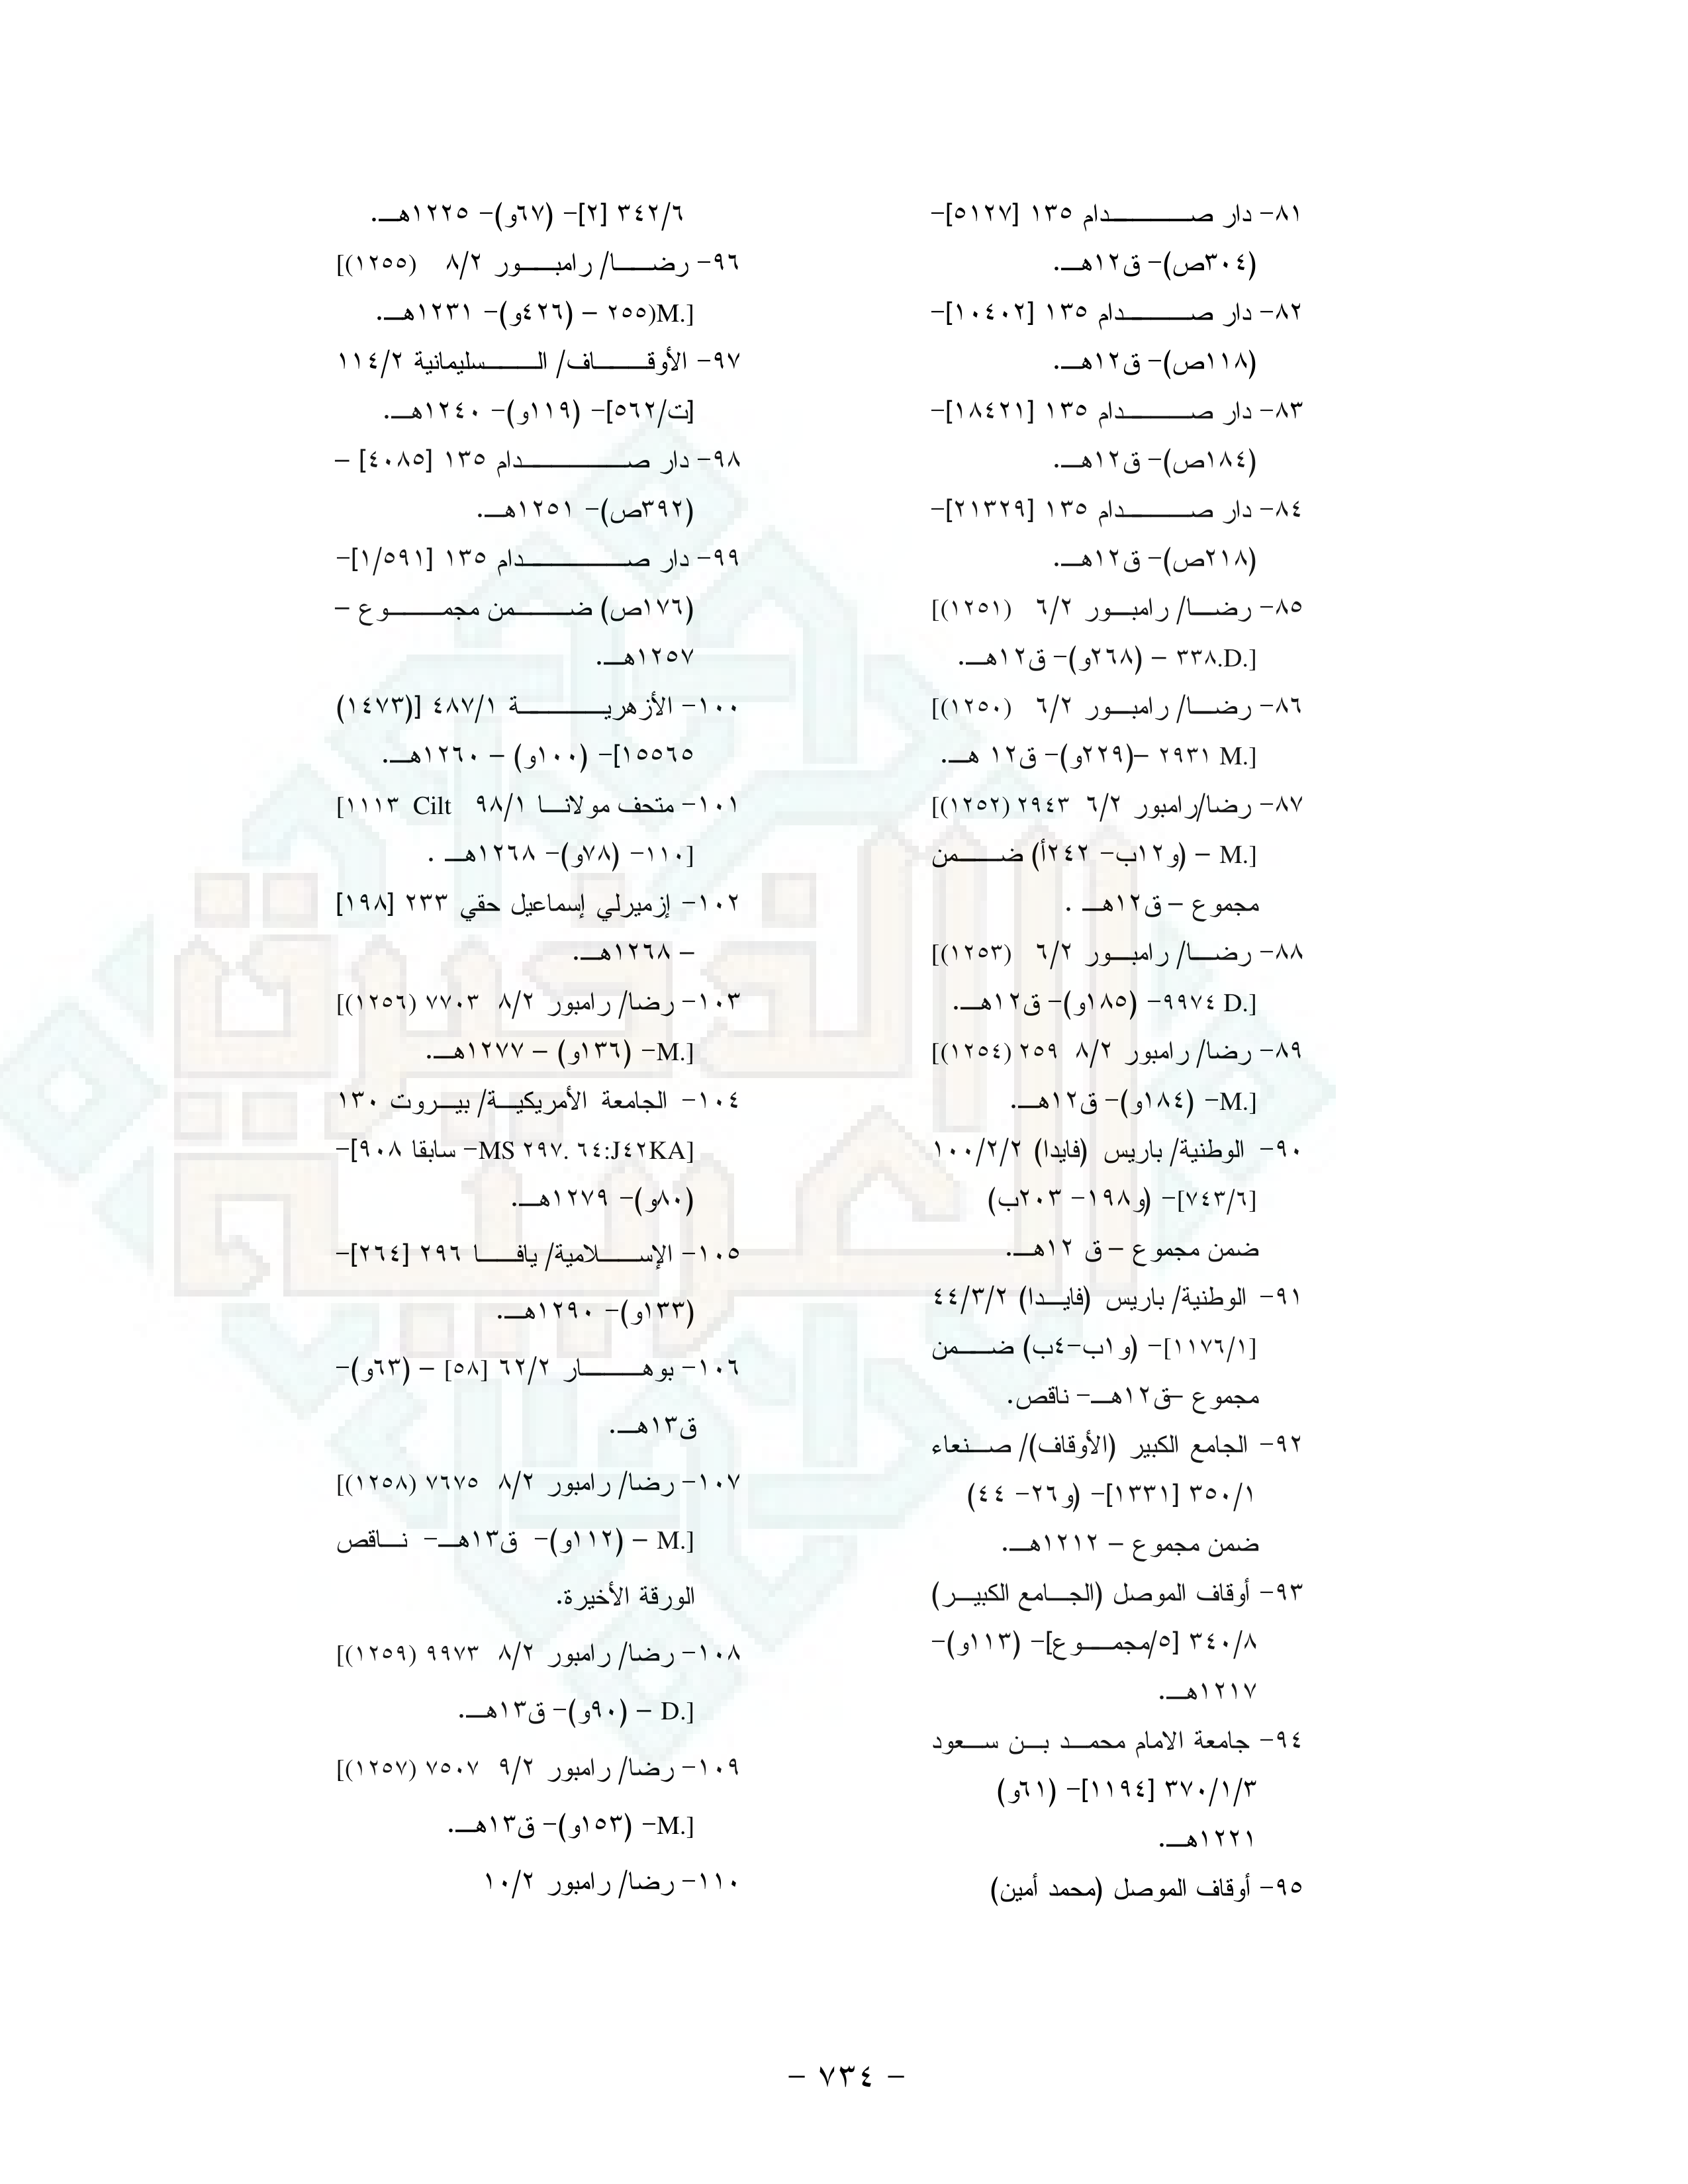 ٨١- دار صدام ١٣٥ [٥١٢٧]-
(٣٠٤ص)- ق١٢هـ.
٨٢- دار صدام ١٣٥ [١٠٤٠٢]-
(١١٨ص)- ق١٢هـ.
٨٣- دار صدام ١٣٥ [١٨٤٢١]-
(١٨٤ص)- ق١٢هـ.
٨٤- دار صدام ١٣٥ [٢١٣٢٩]-
(٢١٨ص)- ق١٢هـ.
٨٥- رضا/ رامبور ٦/٢ (١٢٥١)]
[.D.٣٣٨ – (٢٦٨و)- ق١٢هـ.
٨٦- رضا/ رامبور ٦/٢ (١٢٥٠)]
[.M ٢٩٣١ –(٢٢٩و)- ق١٢ هـ.
٨٧- رضا/رامبور ٦/٢ ٢٩٤٣ (١٢٥٢)]
[.M – (و١٢ب- ٢٤٢أ) ضمن
مجموع – ق١٢هـ .
٨٨- رضا/ رامبور ٦/٢ (١٢٥٣)]
[.D ٩٩٧٤- (١٨٥و)- ق١٢هـ.
٨٩- رضا/ رامبور ٨/٢ ٢٥٩ (١٢٥٤)]
[.M- (١٨٤و)- ق١٢هـ.
٩٠- الوطنية/ باريس (فايدا) ١٠٠/٢/٢
[٧٤٣/٦]- (و١٩٨- ٢٠٣ب)
ضمن مجموع – ق ١٢هـ.
٩١- الوطنية/ باريس (فايدا) ٤٤/٣/٢
[١١٧٦/١]- (و١ب-٤ب) ضمن
مجموع –ق١٢هـ- ناقص.
٩٢- الجامع الكبير (الأوقاف)/ صنعاء
٣٥٠/١ [١٣٣١]- (و٢٦- ٤٤)
ضمن مجموع – ١٢١٢هـ.
٩٣- أوقاف الموصل (الجامع الكبير)
٣٤٠/٨ [٥/مجموع]- (١١٣و)-
١٢١٧هـ.
٩٤- جامعة الامام محمد بن سعود
٣٧٠/١/٣ [١١٩٤]- (٦١و)
١٢٢١هـ.
٩٥- أوقاف الموصل (محمد أمين)
٣٤٢/٦ [٢]- (٦٧و)- ١٢٢٥هـ.
٩٦- رضا/ رامبور ٨/٢ (١٢٥٥)]
[.M(٢٥٥ – (٤٢٦و)- ١٢٣١هـ.
٩٧- الأوقاف/ السليمانية ١١٤/٢
[ت/٥٦٢]- (١١٩و)- ١٢٤٠هـ.
٩٨- دار صدام ١٣٥ [٤٠٨٥] –
(٣٩٢ص)- ١٢٥١هـ.
٩٩- دار صدام ١٣٥ [١/٥٩١]-
(١٧٦ص) ضمن مجموع –
١٢٥٧هـ.
١٠٠- الأزهرية ٤٨٧/١ [(١٤٧٣)
١٥٥٦٥]- (١٠٠و) – ١٢٦٠هـ.
١٠١- متحف مولانا ٩٨/١ Cilt ١١١٣]
[١١٠- (٧٨و)- ١٢٦٨هـ .
١٠٢- إزميرلي إسماعيل حقي ٢٣٣ [١٩٨]
– ١٢٦٨هـ.
١٠٣- رضا/ رامبور ٨/٢ ٧٧٠٣ (١٢٥٦)]
[.M- (١٣٦و) – ١٢٧٧هـ.
١٠٤- الجامعة الأمريكية/ بيروت ١٣٠
[MS ٢٩٧. ٦٤:J٤٢KA- سابقا ٩٠٨]-
(٨٠و)- ١٢٧٩هـ.
١٠٥- الإسلامية/ يافا ٢٩٦ [٢٦٤]-
(١٣٣و)- ١٢٩٠هـ.
١٠٦- بوهار ٦٢/٢ [٥٨] – (٦٣و)-
ق١٣هـ.
١٠٧- رضا/ رامبور ٨/٢ ٧٦٧٥ (١٢٥٨)]
[.M – (١١٢و)- ق١٣هـ- ناقص
الورقة الأخيرة.
١٠٨- رضا/ رامبور ٨/٢ ٩٩٧٣ (١٢٥٩)]
[.D – (٩٠و)- ق١٣هـ.
١٠٩- رضا/ رامبور ٩/٢ ٧٥٠٧ (١٢٥٧)]
[.M- (١٥٣و)- ق١٣هـ.
١١٠- رضا/ رامبور ١٠/٢
– ٧٣٤ –